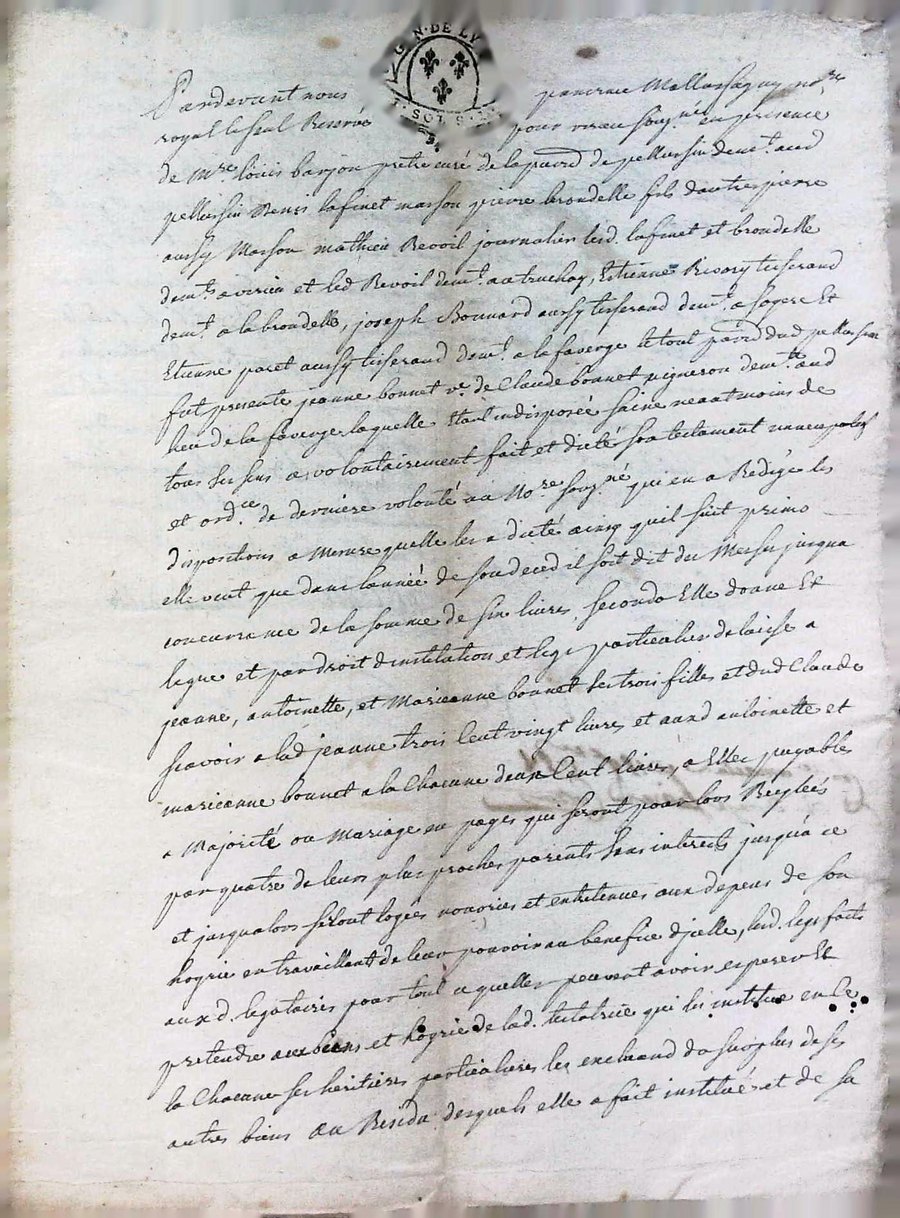 G N · DE LY
SOLS
Pardevant nous pancrace Mallassagny no.re
royal le seul Reservé pour vireau sousgné en presence
de Mre louis barjon pretre curé de la parr.d de pellussin demt. aud
pellussin Denis lafinet masson pierre brondelle fils dautre pierre
aussy Masson mathieu Revoil journalier lesd. lafinet et brondelle
demt. a virieu et led Revoil demt. au truchay, Etienne Rivory tisserand
demt. a la brondelle, joseph Bonnard aussy tisserand demt. a sagere Et
Etienne paret aussy tisserand demt. a la faverge le tout parr.d dud pellussin
fut presente jeanne bonnet ve. de Claude bonnet vigneron demt. aud
lieu de la faverge laquelle Etant indisposée saine neantmoins de
tous ses sens a volontairement fait et dicté son testament nuncupatif
et ord.ce de derniere volonté a a No.re sousgné qui en a Redigé les
dispositions a Mesure quelle les a dicté ainsy quil suit primo
elle veut que dans lannée de son deced il soit dit des Messes jusqua
concurrance de la somme de six livres, secondo Elle donne Et
legue et par droit dinstitution et legs particulier delaisse a
jeanne, antoinette, et Marieanne bonnet ses trois filles et dud Claude
scavoir a lad jeanne trois Cent vingt livres et auxd antoinette et
marieanne bonnet a la Chacune deux Cent livres, a Elles payables
a Majorité ou Mariage en pages qui seront pour lors Reglées
par quatre de leurs plus proches parents sans interets jusqua ce
et jusqualors seront logées nouries et entretenues aux depens de son
hoyrie en travaillant de leur pouvoir au benefice dicelle, lesd. legs faits
auxd. legataires pour tout ce quelles peuvent avoir esperer Et
pretendre aux biens et hoyrie de lad. testatrice qui les institue en Ce
la Chacune ses heritieres particulieres les excluand du surplus de ses
autres biens au Residu desquels elle a fait institué et de sa